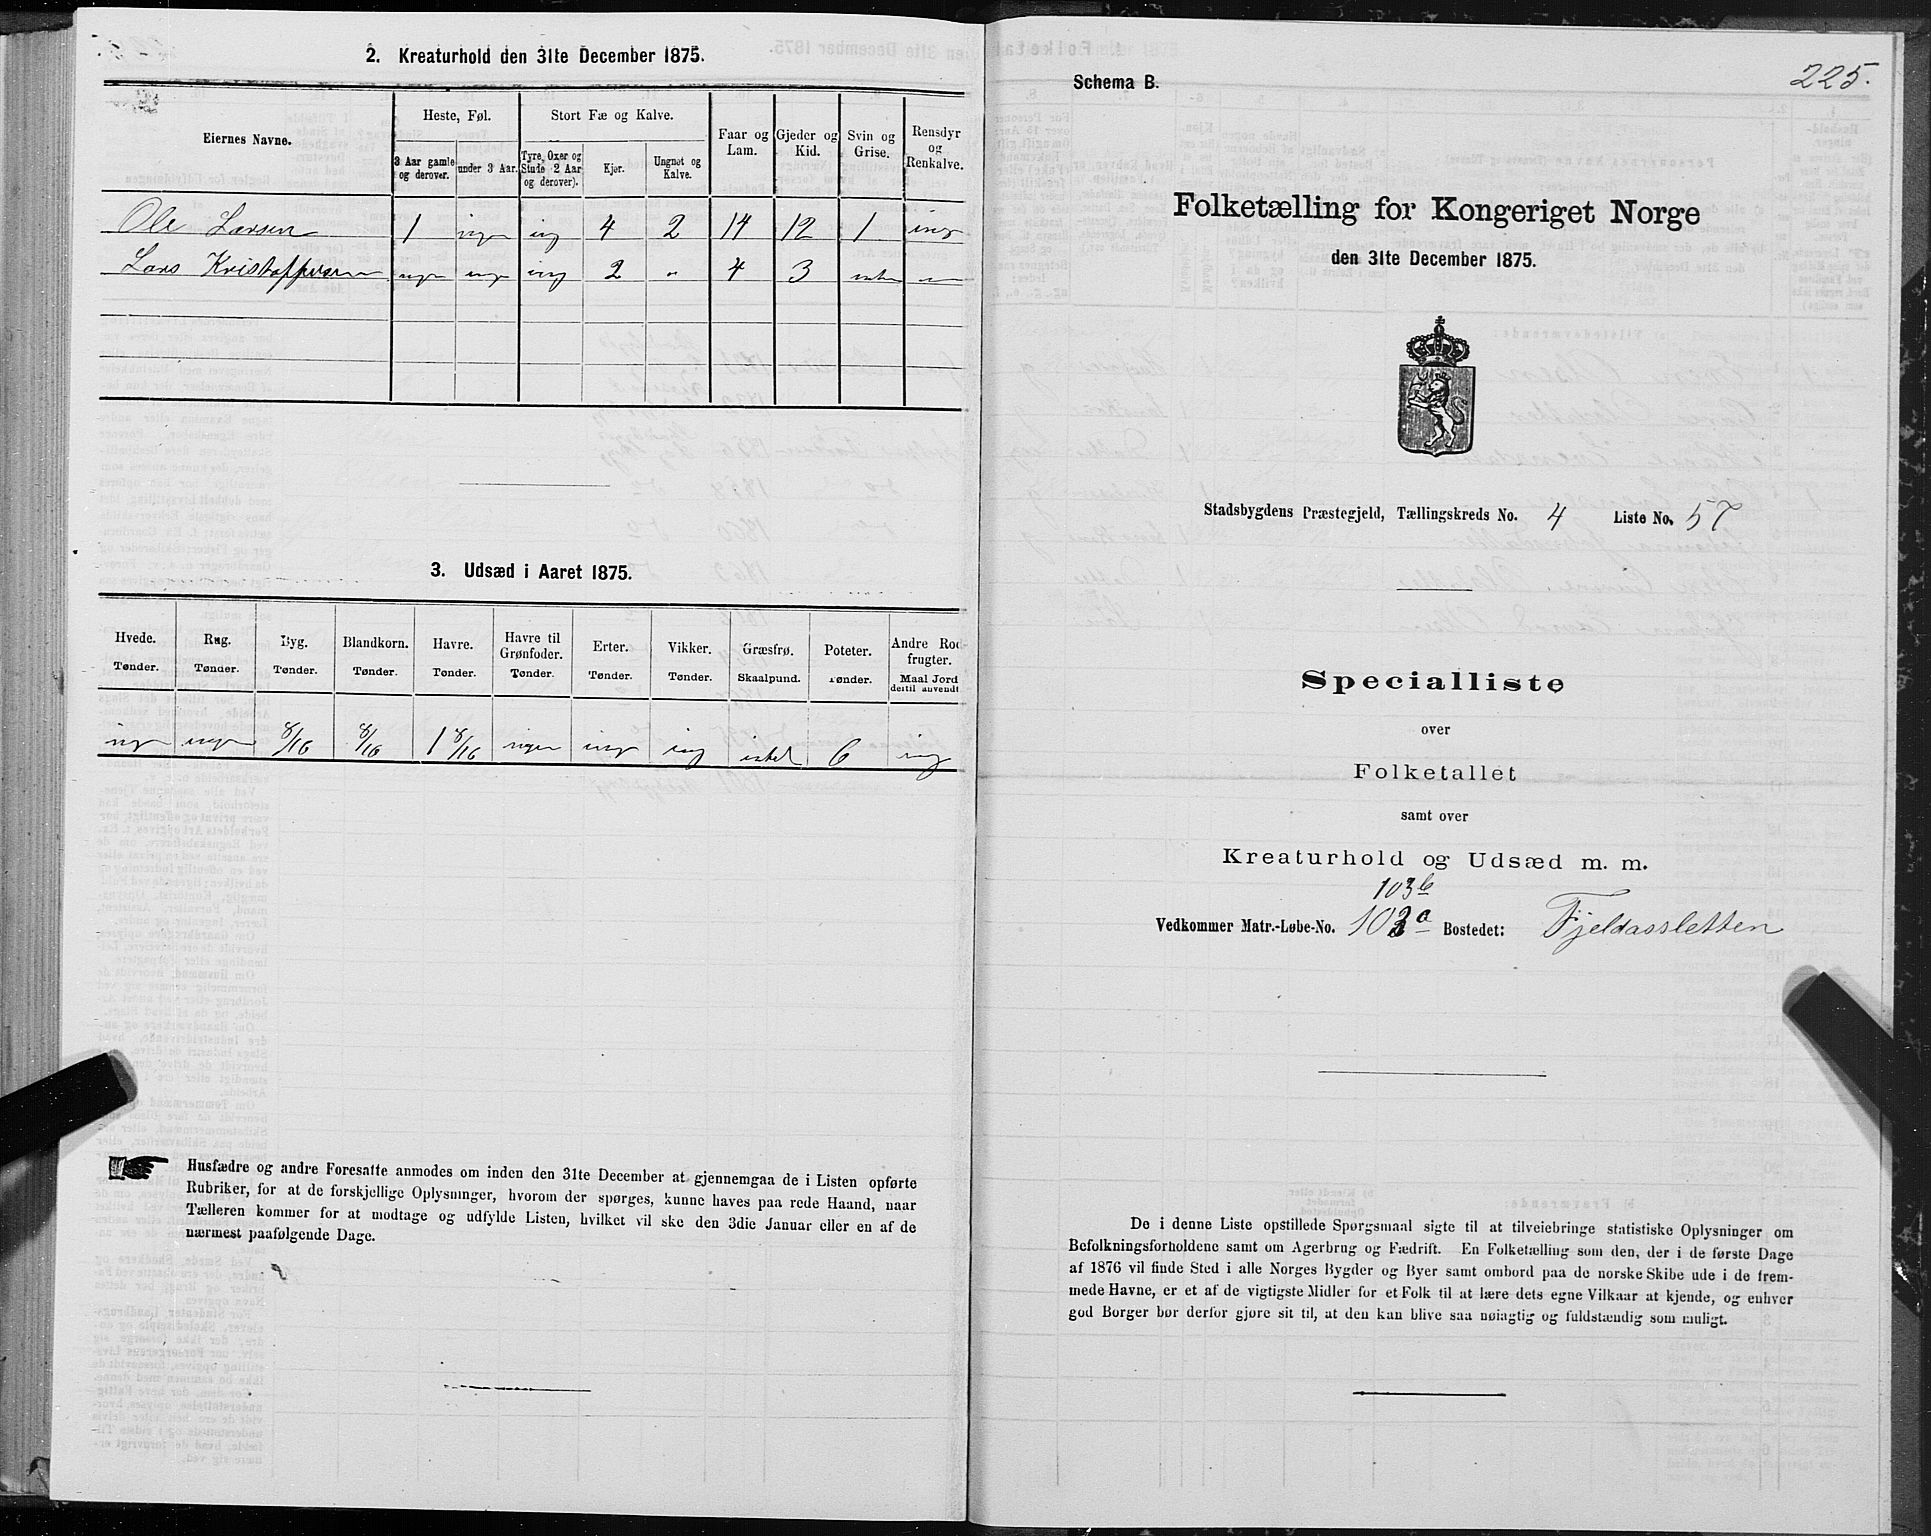 2. Kreaturhold den 31te December 1875.
Eiernes Navne. Heste, Føl. Stort Fæ og Kalve. Faar og Lam. Gjeder og Kid. Svin og Grise. Rensdyr og Renkalve.
3 Aar gamle og derover. under 3 Aar. Tyre, Oxer og Stude 2 Aar og derover). Kjør. Ungnøt og Kalve.
Ole Larsen 1 ingen ing 4 2 14 12 1 ing
Lars Kristoffersen ingen inge ing 2 " 4 3 "
3. Udsæd i Aaret 1875.
Hvede. Rug. Byg. Blandkorn. Havre. Havre til Grønfoder. Erter. Vikker. Græsfrø. Poteter. Andre Rodfrugter.
Tønder. Tønder. Tønder. Tønder. Tønder. Tønder. Tønder. Tønder. Skaalpund. Tønder. Maal Jord dertil anvendt
ingen ingen 8/16 8/16 1 8/16 ingen ing ing intet 6 ing
Husfædre og andre Foresatte anmodes om inden den 31te December at gjennemgaa de i Listen opførte
Rubriker, for at de forskjellige Oplysninger, hvorom der spørges, kunne haves paa rede Haand, naar
Tælleren kommer for at modtage og udfylde Listen, hvilket vil ske den 3die Januar eller en af de
nærmest paafølgende Dage.
225.
Schema B.
Folketælling for Kongeriget Norge
den 31te December 1875.
Stadsbygdens Præstegjeld, Tællingskreds No. 4 Liste No. 57
Specialliste
over
Folketallet
samt over
Kreaturhold og Udsæd m. m.
103b
Vedkommer Matr.-Løbe-No. 103a Bostedet: Fjeldassletten
De i denne Liste opstillede Spørgsmaal sigte til at tilveiebringe statistiske Oplysninger om
Befolkningsforholdene samt om Agerbrug og Fædrift. En Folketælling som den, der i de første Dage
af 1876 vil finde Sted i alle Norges Bygder og Byer samt ombord paa de norske Skibe ude i de frem-
mede Havne, er et af de vigtigste Midler for et Folk til at lære dets egne Vilkaar at kjende, og enhver
god Borger bør derfor gjøre sit til, at den kan blive saa nøiagtig og fuldstændig som muligt.